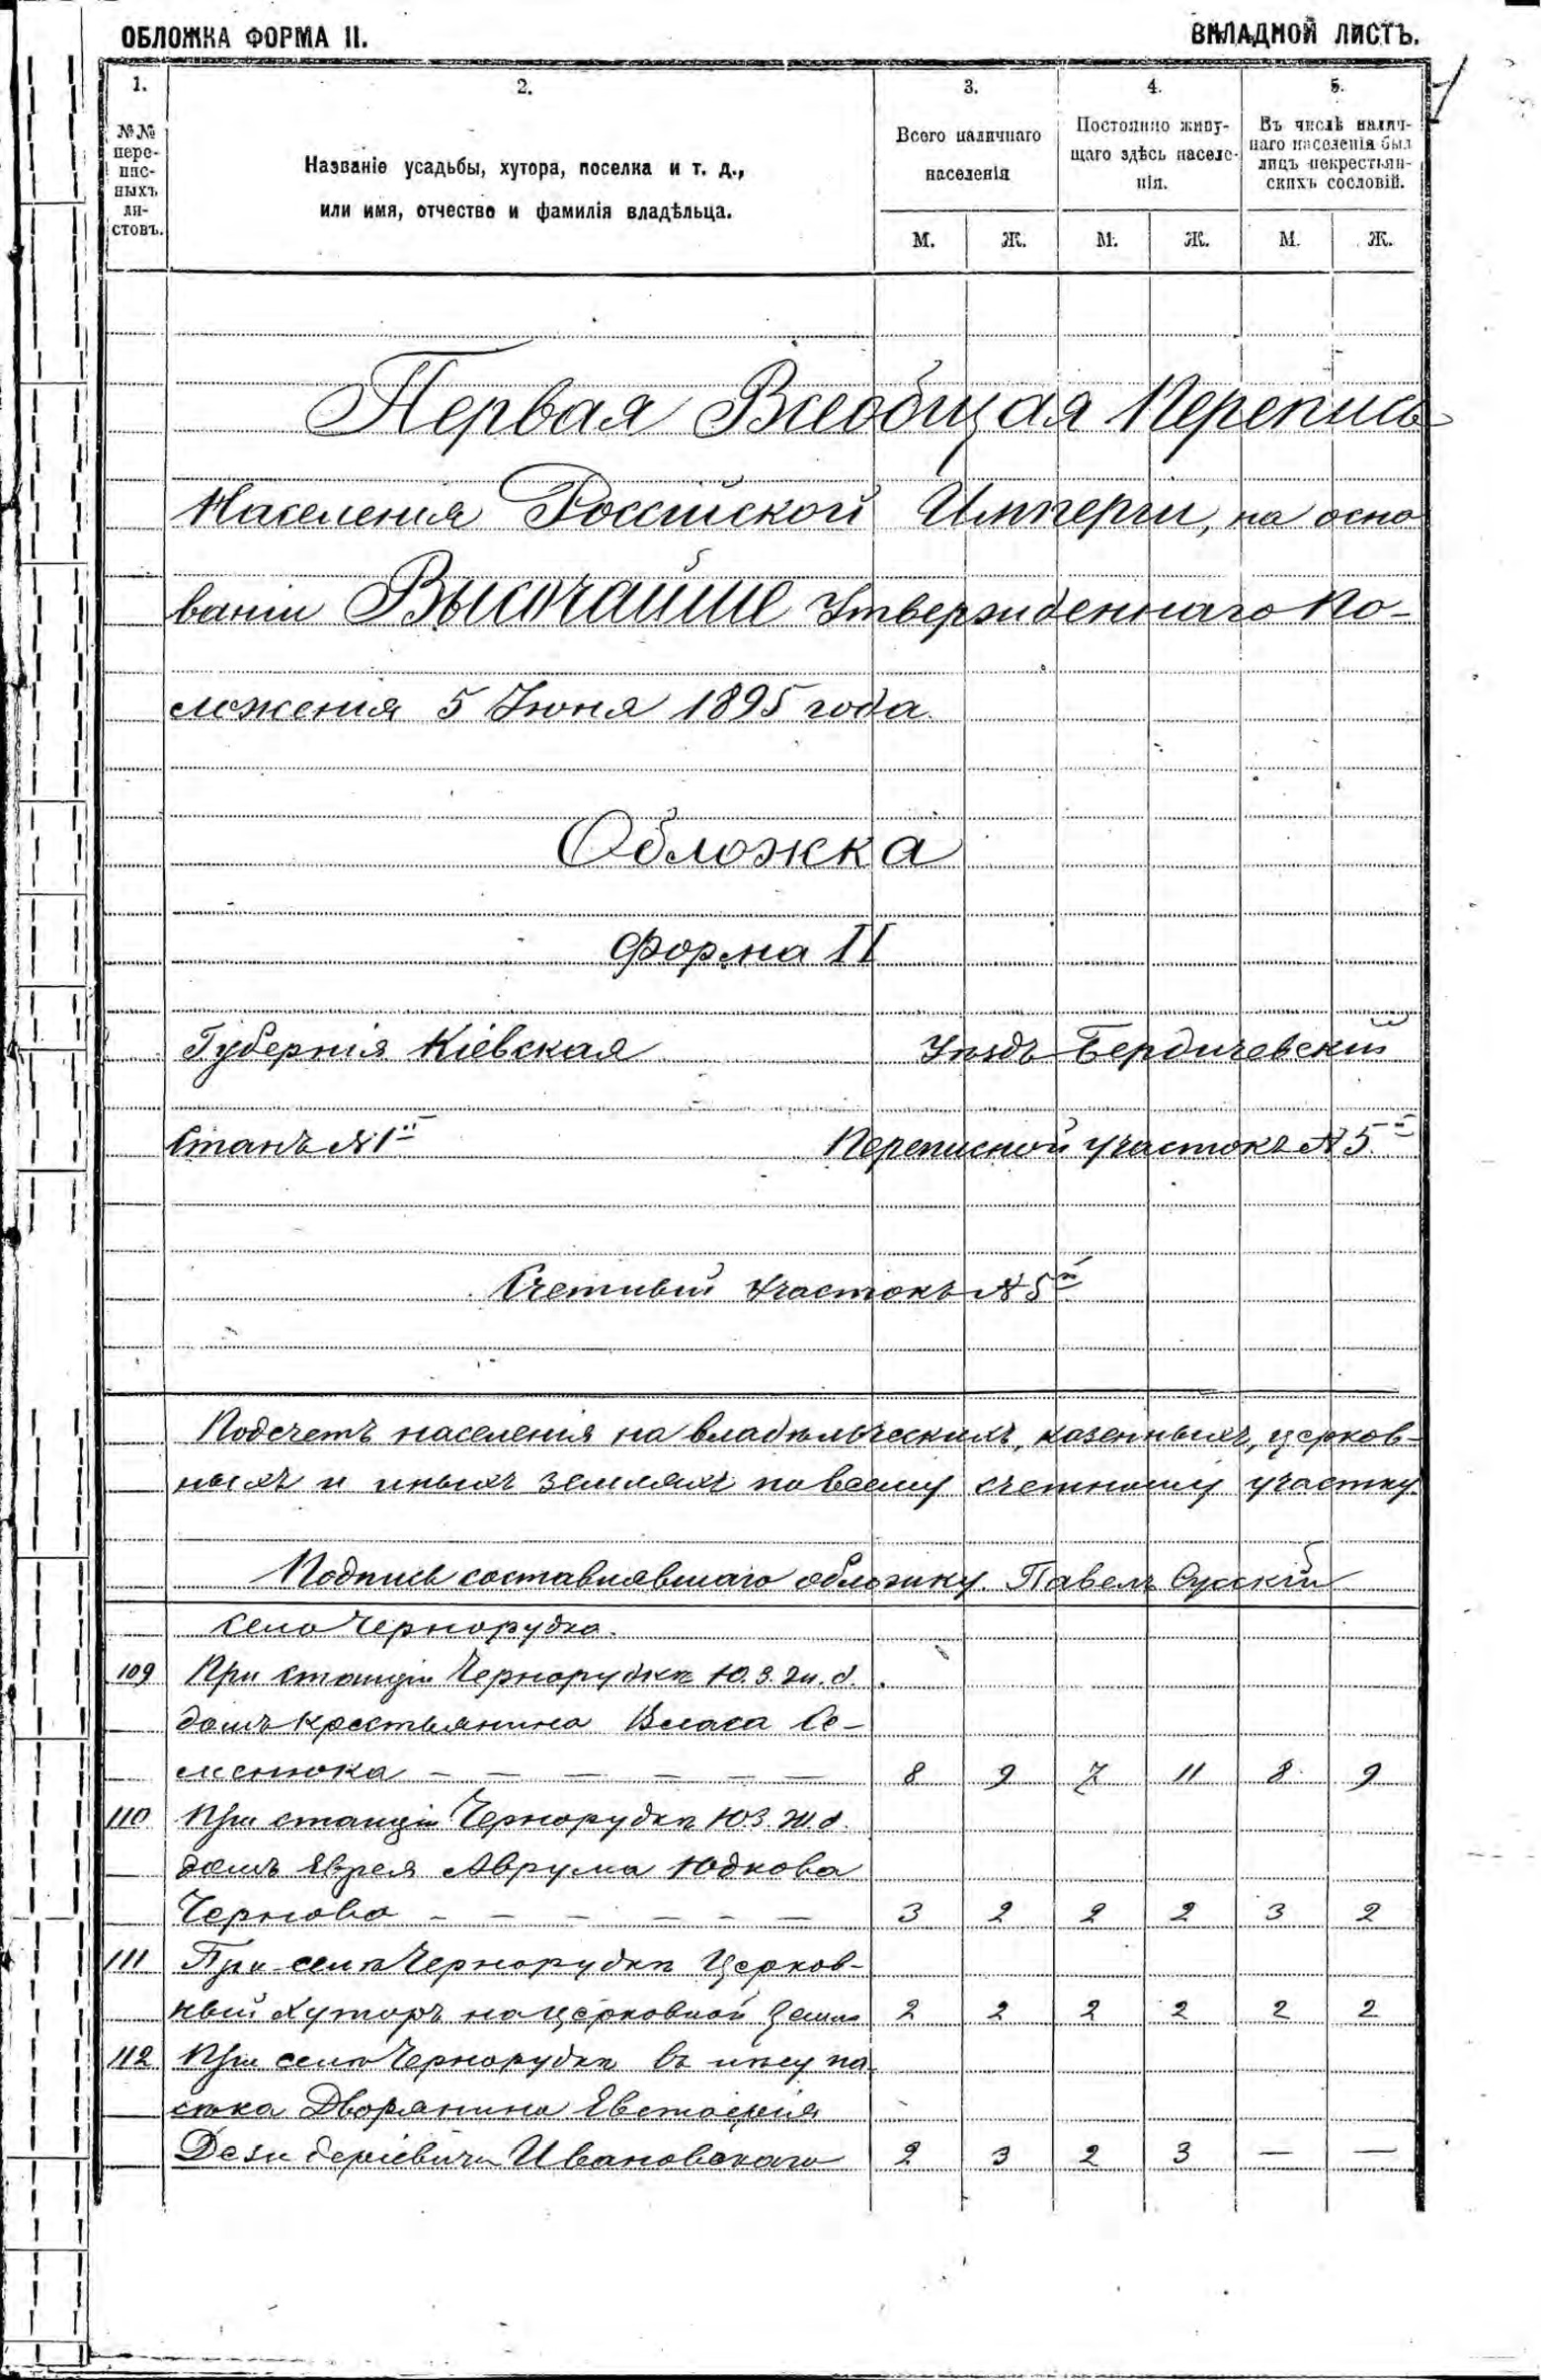 ОБЛОЖКА ФОРМА II.
ВКЛАДНОЙ ЛИСТЪ.
1. 2. 3. 4. 5.
№№ пере-
пис-
ныхъ
ли-
стовъ.
Названіе усадьбы, хутора, поселка и т. д.,
или имя, отчество и фамилія владѣльца.
Всего наличнаго
населенія
Постоянно живу-
щаго здѣсь населе-
нія.
Въ числѣ налич-
наго населенія был
лицъ некрестьян-
скихъ сословій.
М. Ж. М. Ж. М. Ж.
Первая Всеобщая Перепись
Населенія Россійской Имперіи, на осно
ваніи Высочайше Утвержденнаго По-
ложенія 5 Іюня 1895 года.
Обложка
Форма II
Губернія Кіевская Уѣздъ Бердичевскій
Станъ №1й Переписной участокъ №5й
Счетный Участокъ №5й
Подсчетъ населенія на владѣльческихъ, казенныхъ, церков-
ныхъ и иныхъ земляхъ по всему счетному участку.
Подпись составлявшаго обложку. Павелъ Сусскій
Село Чернорудка.
109 При станціи Чернорудкѣ Ю.З.ж.д.
домъ крестьянина Власа Се-
менюка — — — — — — 8 9 7 11 8 9
110 При станціи Чернорудкѣ Ю.З.ж.д.
домъ Еврея Аврума Юдкова
Чернова — — — — — — 3 2 2 2 3 2
111 При селѣ Чернорудкѣ Церков-
ный Хуторъ на церковной землѣ 2 2 2 2 2 2
112 При селѣ Чернорудкѣ въ лѣсу па
сѣка Дворянина Евстафія
Дезидеріевича Ивановскаго 2 3 2 3 — —